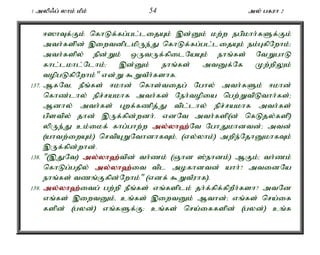 1 அலிஃப் லாம் மீம் 54 அல் பகரா 2
ஈஸாவுக்கும் கொடுக்கப்பட்டதையும் இன்னும் மற்ற நபிமார்களுக்கும்
அவர்களின் இறைவனிடமிருந்து கொடுக்கப்பட்டதையும் நம்புகிறோம்;
அவர்களில் நின்றும் ஒருவருக்கிடையேயும் நாங்கள் வேறுபாடு
காட்டமாட்டோம்; இன்னும் நாங்கள் அவனுக்கே முற்றிலும்
வழிபடுகிறோம்" என்று கூறுவீர்களாக.
137. ஆகவே, நீங்கள் ஈமான் கொள்வதைப் போல் அவர்களும் ஈமான்
கொண்டால் நிச்சயமாக அவர்கள் நேர்வழியை பெற்றுவிடுவார்கள்;
ஆனால் அவர்கள் புறக்கணித்து விட்டால் நிச்சயமாக அவர்கள்
பிளவில் தான் இருக்கின்றனர். எனவே அவர்களி(ன் கெடுதல்களி)
லிருந்து உம்மைக் காப்பாற்ற அல்லாஹ்வே போதுமானவன்; அவன்
(யாவற்றையும்) செவியுறுவோனாகவும், (எல்லாம்) அறிந்தோனுமாகவும்
இருக்கின்றான்.
138. "(இதுவே) அல்லாஹ்வின் வர்ணம் (ஞான ஸ்நானம்) ஆகும்; வர்ணம்
கொடுப்பதில் அல்லாஹ்வை விட அழகானவன் யார்? அவனையே
நாங்கள் வணங்குகின்றோம்" (எனக் கூறுவீராக).
139. அல்லாஹ்வைப் பற்றி நீங்கள் எங்களிடம் தர்க்கிக்கிறீர்களா? அவனே
எங்கள் இறைவனும், உங்கள் இறைவனும் ஆவான்; எங்கள் செய்கை
களின் (பலன்) எங்களுக்கு; உங்கள் செய்கைகளின் (பலன்) உங்க